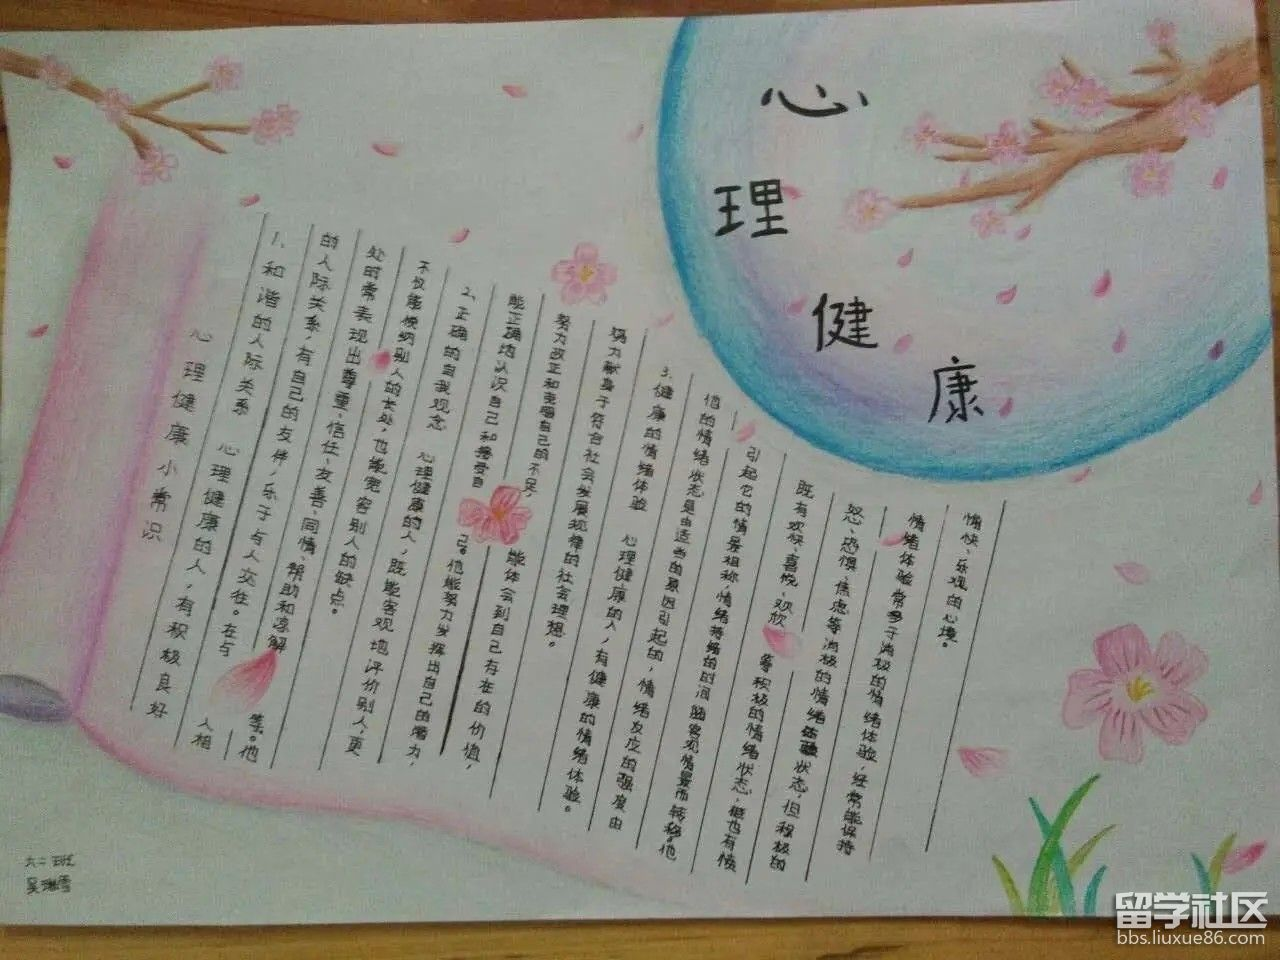 心理健康
心理健康小常识
1、和谐的人际关系 心理健康的人，有积极良好
的人际关系，有自己的友伴，乐于与人交往。在与人相
处的常表现出尊重、信任、友善、同情、帮助和谅解等。他
不仅能悦纳别人的长处，也能宽容别人的缺点。
2、正确的自我观念 心理健康的人，既能客观地评价别人，更
能正确地认识自己和接受自己。他能努力发挥出自己的潜力，
努力改正和克服自己的不足，能体会到自己存在的价值，
努力献身于符合社会发展规律的社会理想。
3、健康的情绪体验 心理健康的人，有健康的情绪体验。
他的情绪状态是由适当的原因引起的，情绪反应的强度由
引起它的情景相称，情绪持续的时间随客观情景而转移。他
既有欢快、喜悦、欢欣等积极的情绪状态，也有愤
怒、恐惧、焦虑等消极的情绪体验状态，但积极的
情绪体验常多于消极的情绪体验，经常能保持
愉快、乐观的心境。
六二班
吴琳雪
留学社区
bbs.liuxue86.com